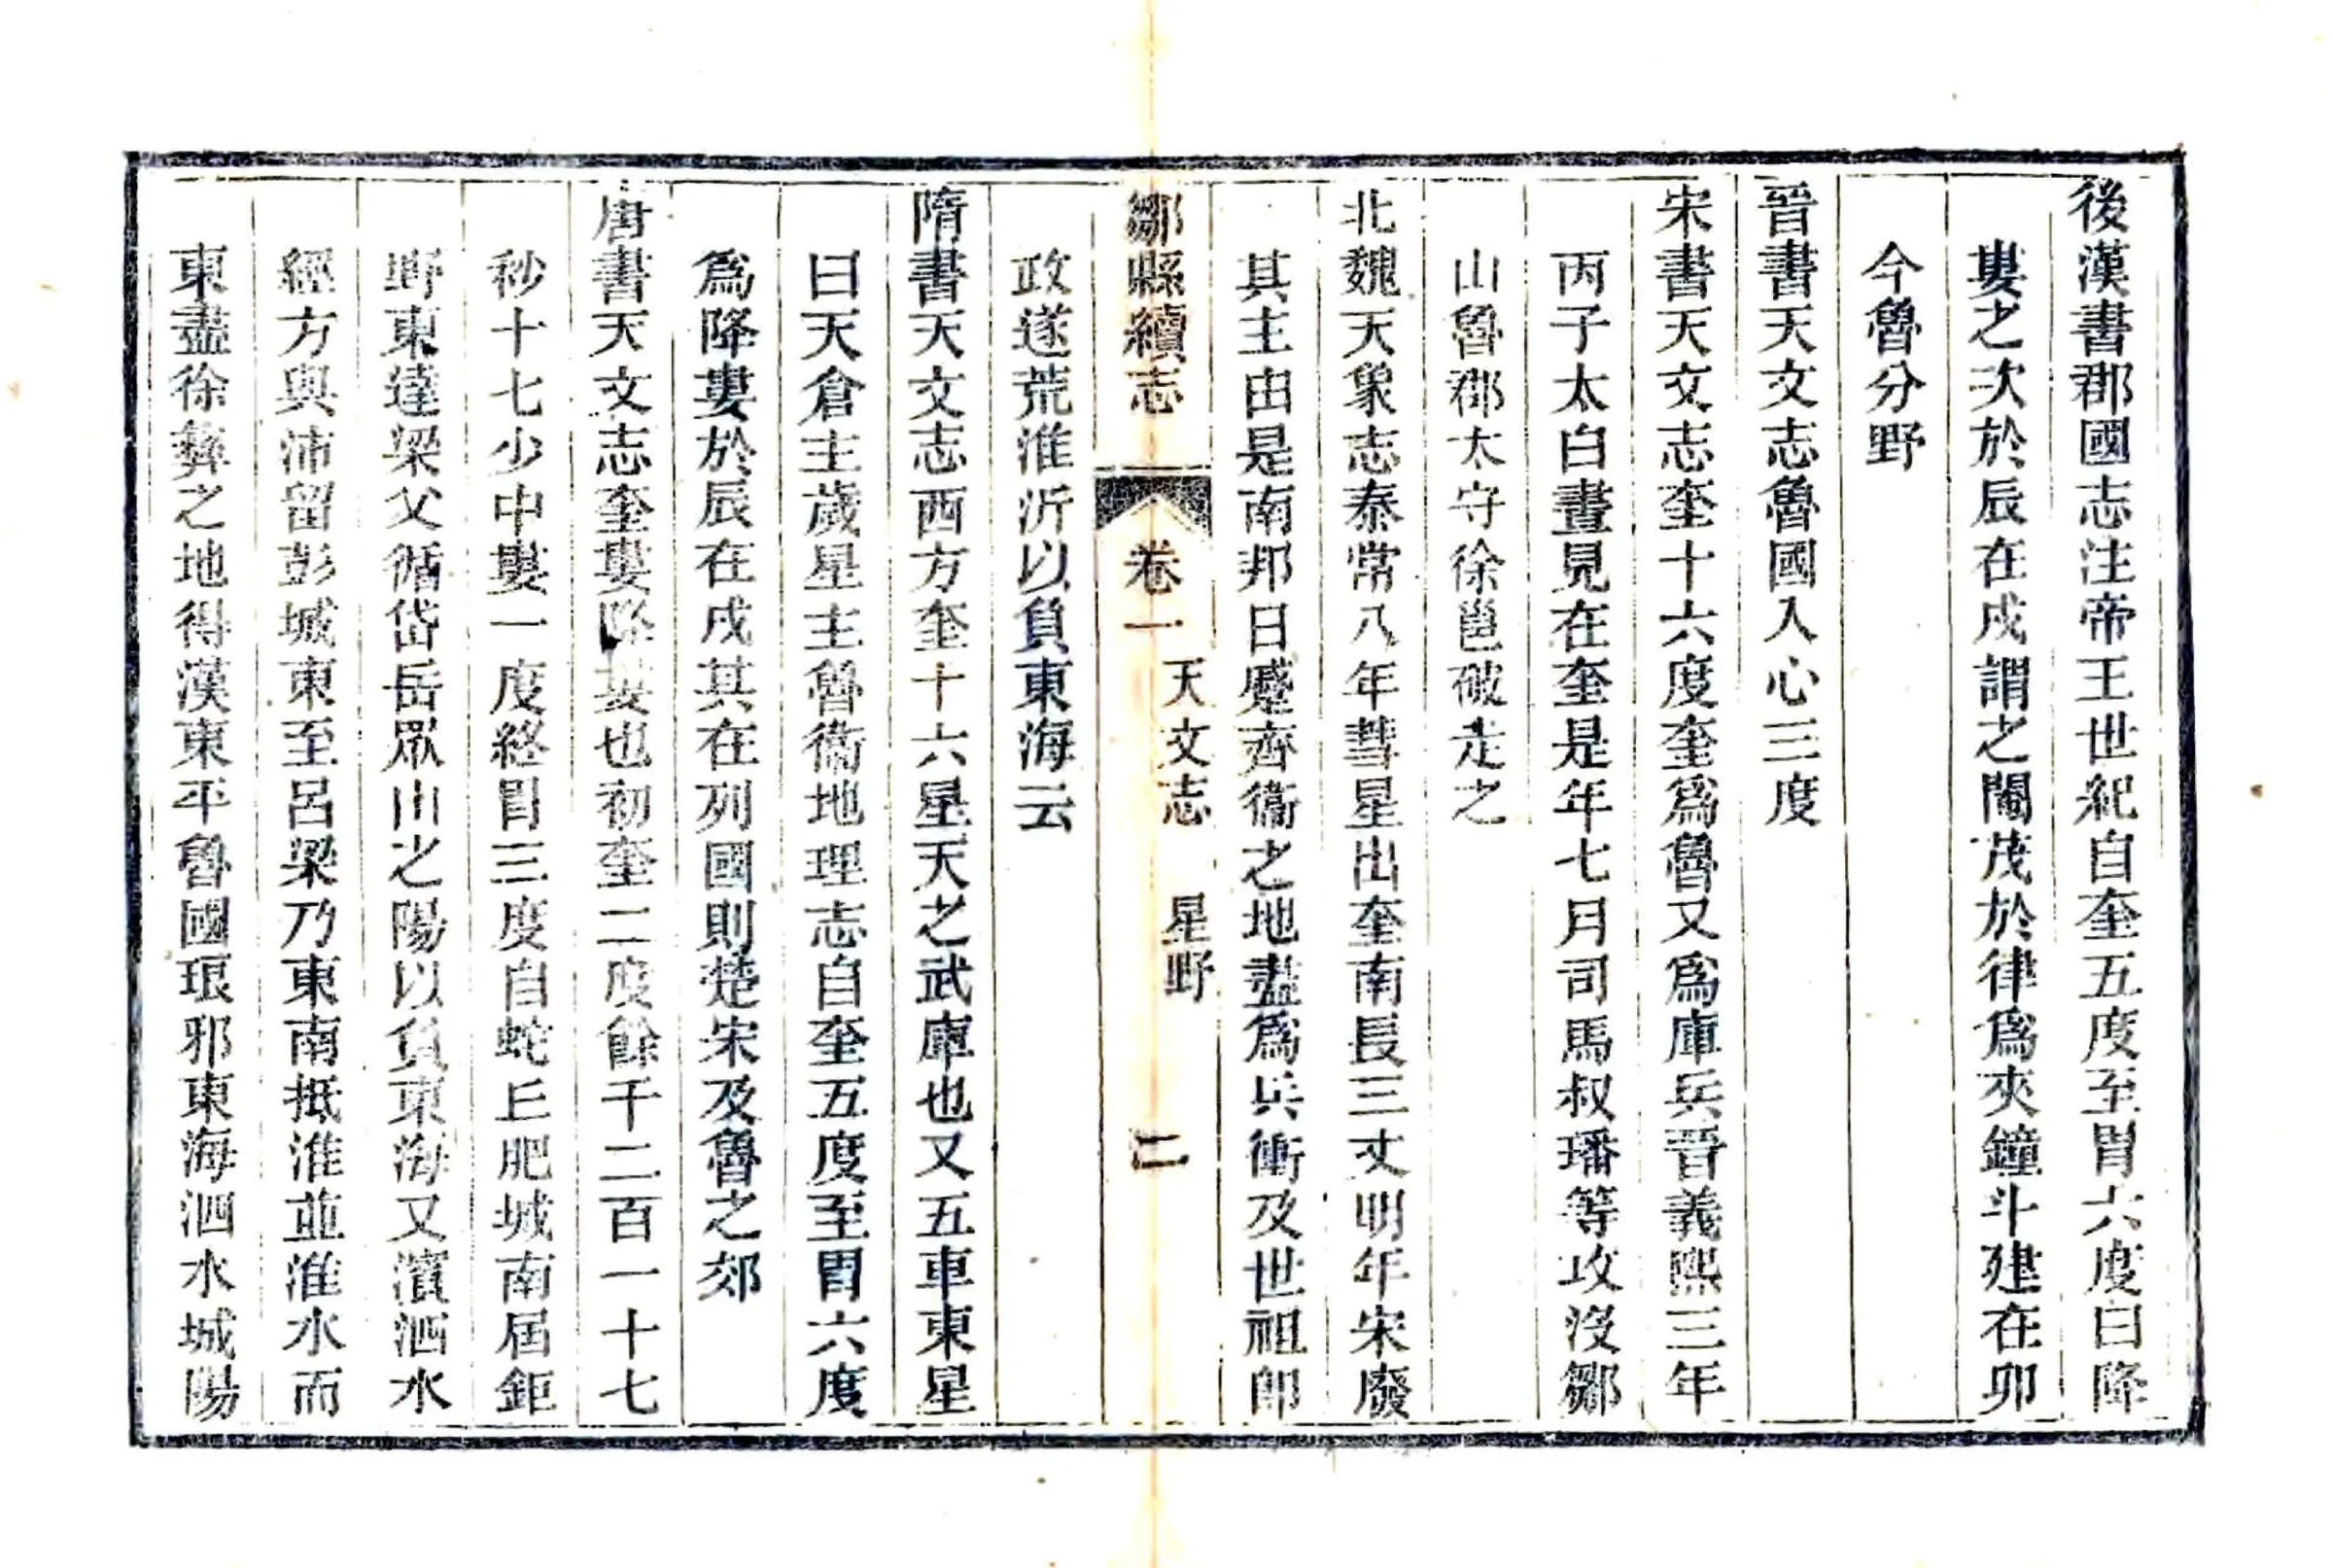 後漢書郡國志注帝王世紀自奎五度至胃六度曰降
婁之次於辰在戌謂之閹茂於律爲夾鐘斗建在卯
今魯分野
晉書天文志魯國入心三度
宋書天文志奎十六度奎爲魯又爲庫兵晉義熙三年
丙子太白晝見在奎是年七月司馬叔璠等攻沒鄒
山魯郡太守徐邕破走之
北魏天象志泰常八年彗星出奎南長三丈明年宋廢
其主由是南邦日蹙齊衞之地盡爲兵衝及世祖卽
政遂荒淮沂以負東海云
鄒縣續志
卷一
天文志 星野
二
隋書天文志西方奎十六星天之武庫也又五車東星
曰天倉主歲星主魯衞地理志自奎五度至胃六度
爲降婁於辰在戌其在列國則楚宋及魯之郊
唐書天文志奎婁降婁也初奎二度餘千二百一十七
秒十七少中婁一度終胃三度自蛇丘肥城南屆鉅
野東達梁父循岱岳眾山之陽以負東海又濱泗水
經方與沛留彭城東至呂梁乃東南抵淮並淮水而
東盡徐彝之地得漢東平魯國琅邪東海泗水城陽